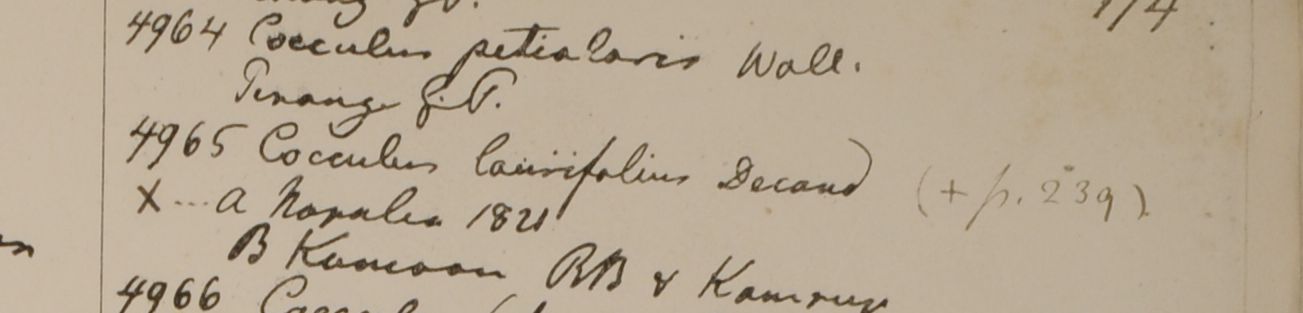 1/4
4964 Cocculus petiolaris Wall.
Penang G.P.
4965 Cocculus laurifolius Decand (+ p. 239)
X ... a Napalia 1821
B Kumaon RB & Kamrup
4966